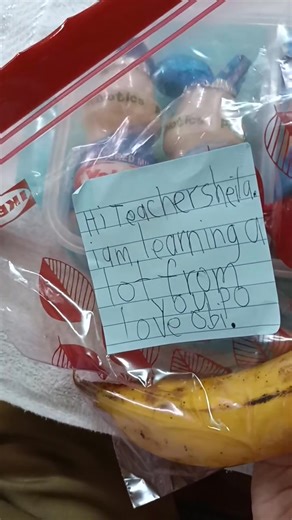 Hi Teacher sheila.
i am learning a
lot from
you po
love obi.